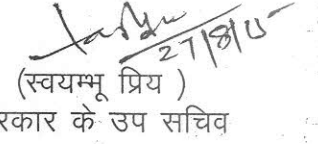 27/8/15
(स्वयम्भू प्रिय )
रकार के उप सचिव